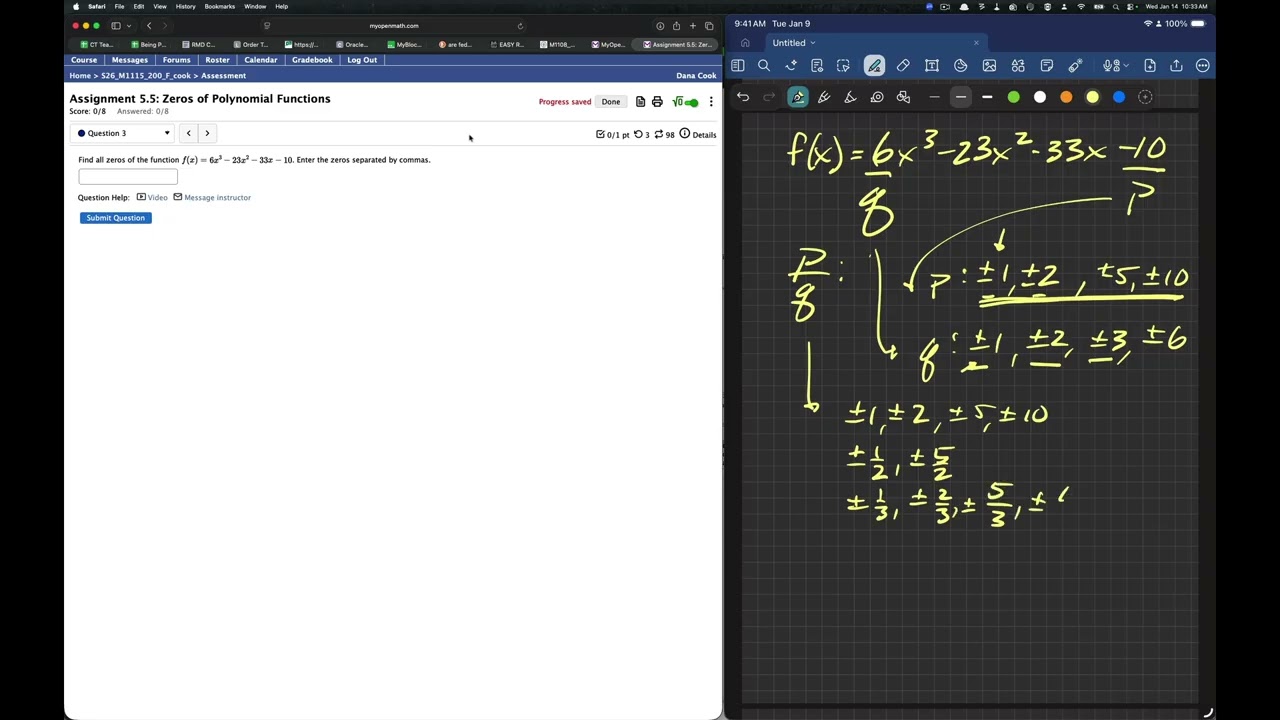 Safari File Edit View History Bookmarks Window Help
Wed Jan 14 10:33AM
myopenmath.com
CT Tea... Being P... RMD C... Order T... https:/... Oracle... MyBloc... are fed... EASY R... M1108_... MyOpe... Assignment 5.5: Zer...
Course Messages Forums Roster Calendar Gradebook Log Out
Home > S26_M1115_200_F_cook > Assessment
Dana Cook
Assignment 5.5: Zeros of Polynomial Functions
Progress saved Done
Score: 0/8 Answered: 0/8
Question 3
0/1 pt 3 98 Details
Find all zeros of the function f(x) = 6x³ − 23x² − 33x − 10. Enter the zeros separated by commas.
Question Help: Video Message instructor
Submit Question
9:41AM Tue Jan 9
100%
Untitled
f(x) = 6x³ -23x² -33x -10
q
p
p/q :
p : ±1, ±2, ±5, ±10
q : ±1, ±2, ±3, ±6
±1, ±2, ±5, ±10
±1/2, ±5/2
±1/3, ±2/3, ±5/3, ±